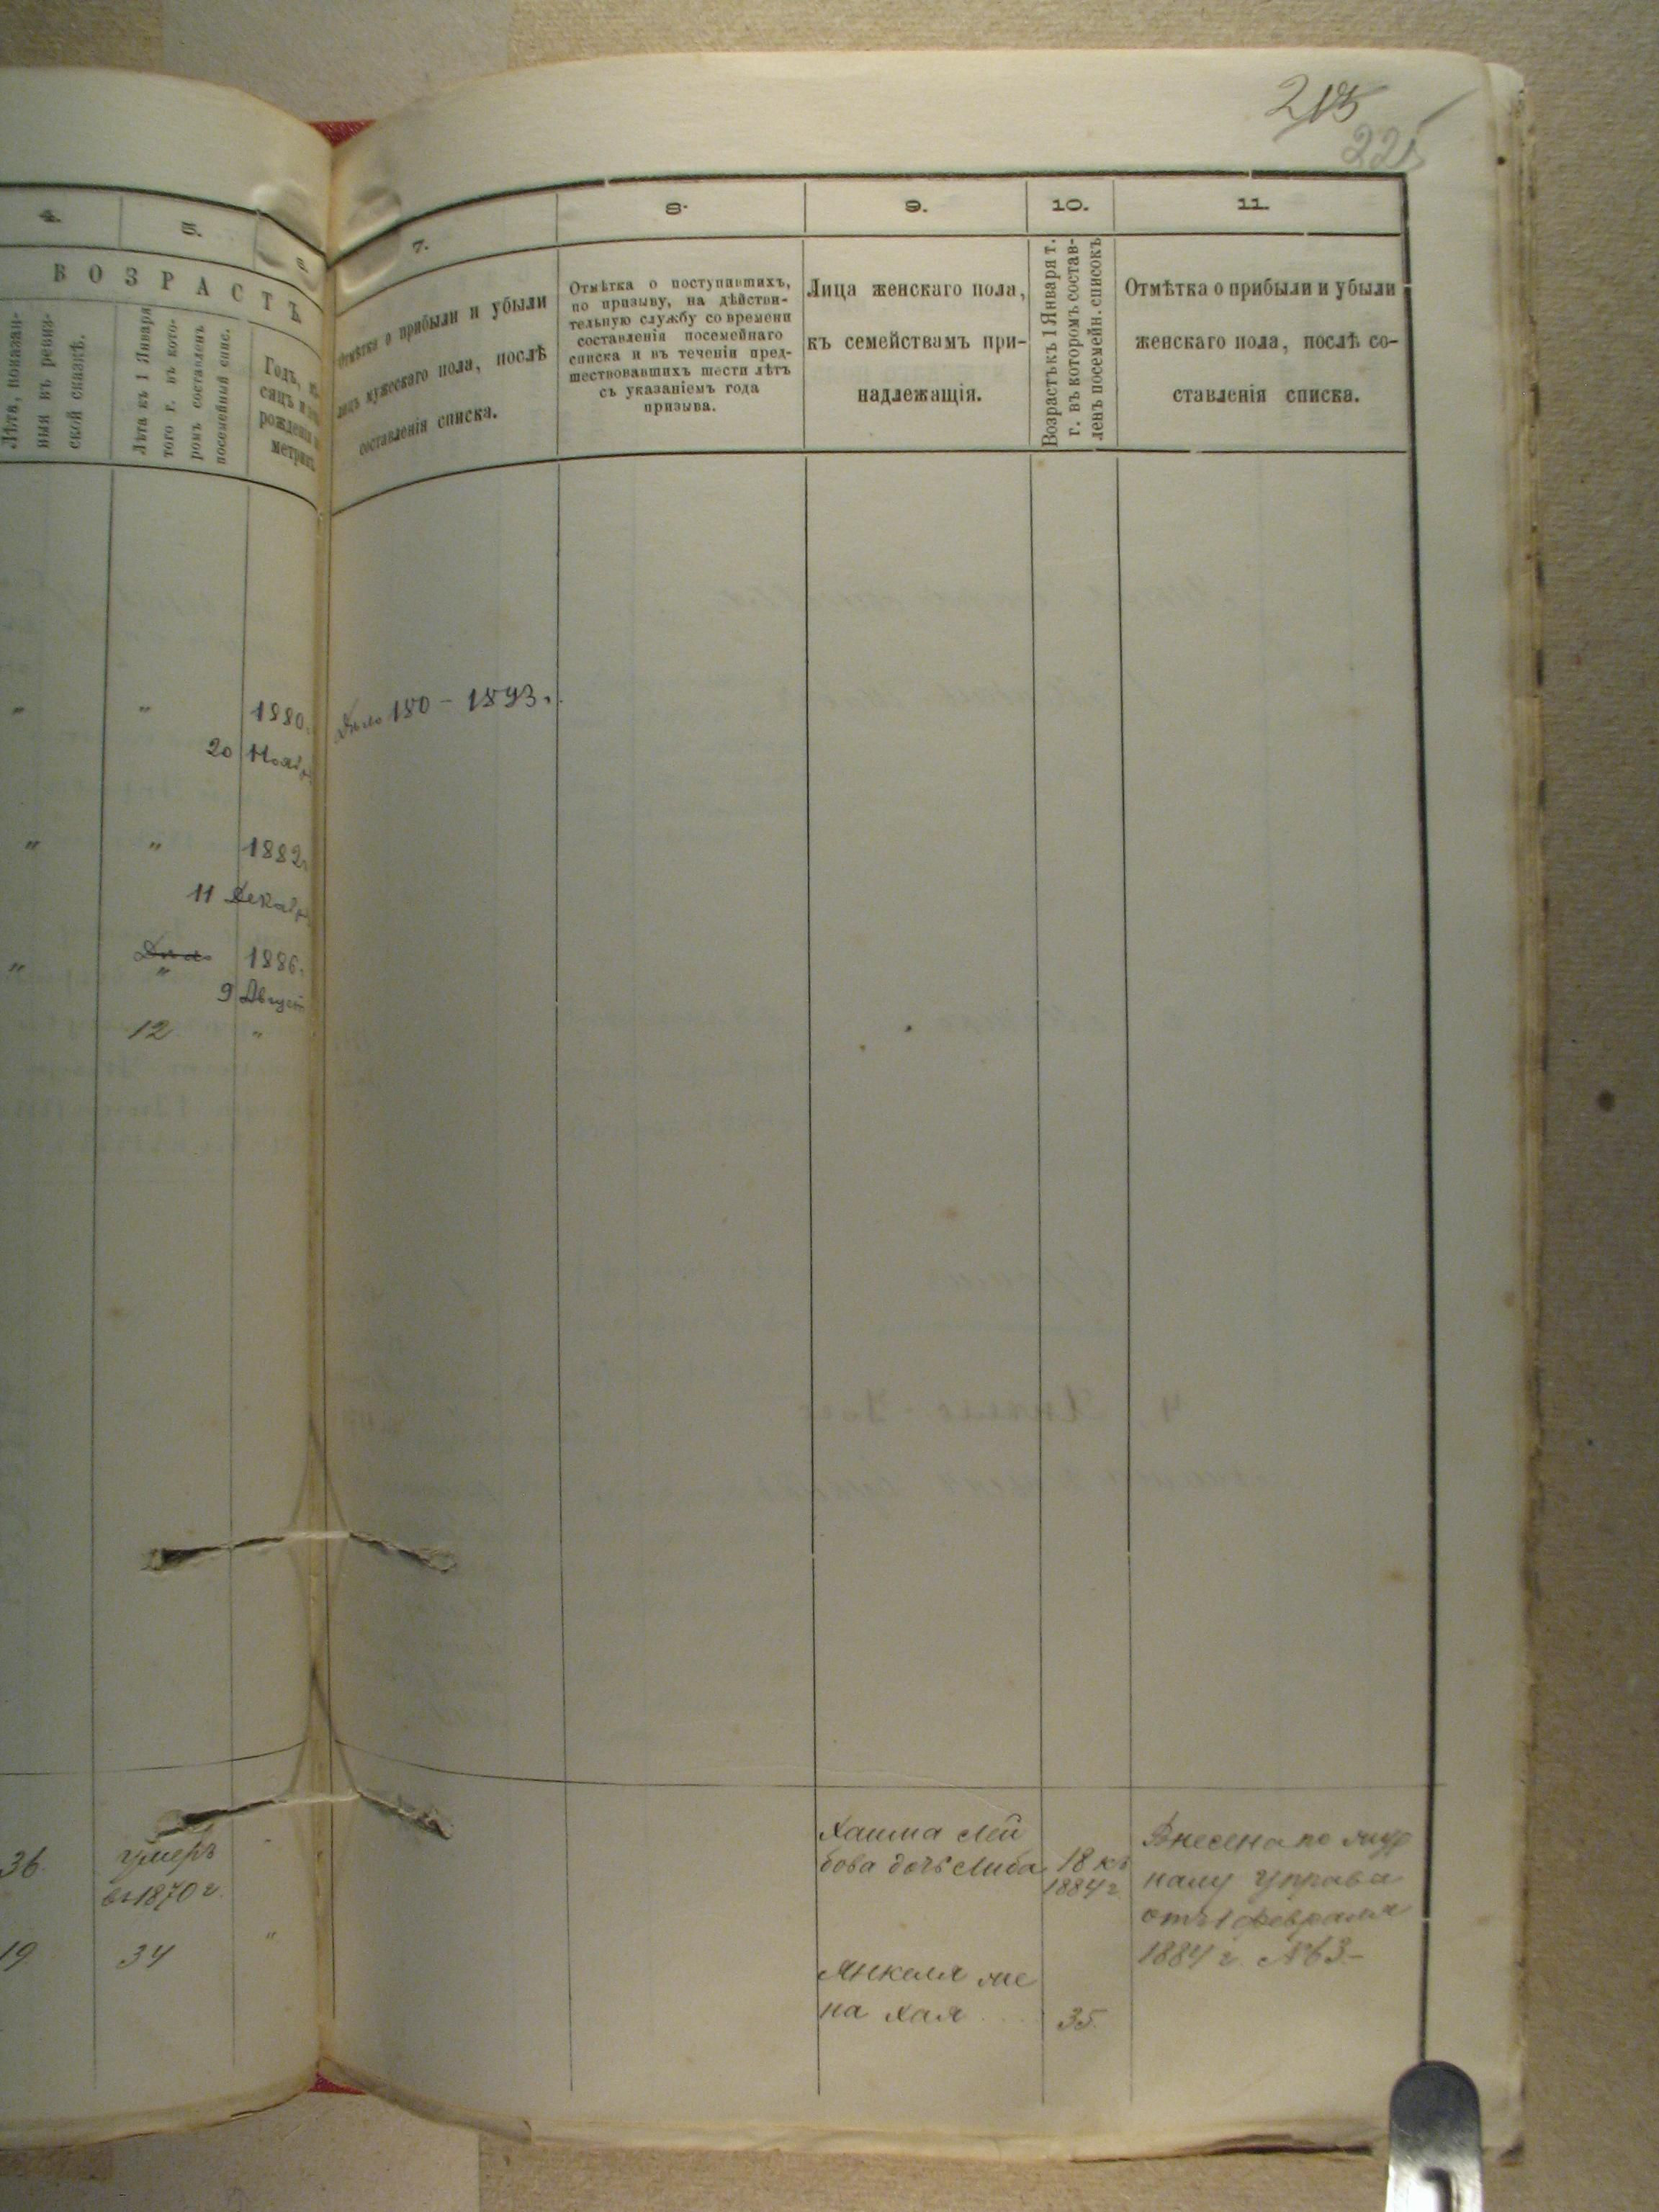 215
225
4.
5.
6
ВОЗРАСТЪ
Лѣта, показан-
ныя въ ревиз-
ской сказкѣ.
Лѣта къ 1 Января
того г. въ кото-
ромъ составленъ
посемейный спис.
Годъ, мѣ-
сяцъ и
рожденія
метрик.
7.
Отмѣтка о прибыли и убыли
лицъ мужескаго пола, послѣ
составленія списка.
8.
Отмѣтка о поступившихъ,
по призыву, на дѣйстви-
тельную службу со времени
составленія посемейнаго
списка и въ теченіи пред-
шествовавшихъ шести лѣтъ
съ указаніемъ года
призыва.
9.
Лица женскаго пола,
къ семействамъ при-
надлежащія.
10.
Возрастъ къ 1 Января т.
г. въ которомъ состав-
ленъ посемейн. списокъ
11.
Отмѣтка о прибыли и убыли
женскаго пола, послѣ со-
ставленія списка.
" " 1880.
20 Нояб
Дѣло 180 - 1893 г.
" " 1882
11 Декаб
Дѣло 1886.
" "
9 Август
12 "
36 умеръ
въ 1870 г.
19 34 "
Хашма Лей
бова дочь Либа 18 къ
1884 г.
Внесена по жур
налу Управы
отъ 1 февраля
1884 г. № 63 –
Янкеля же
на Хая 35.